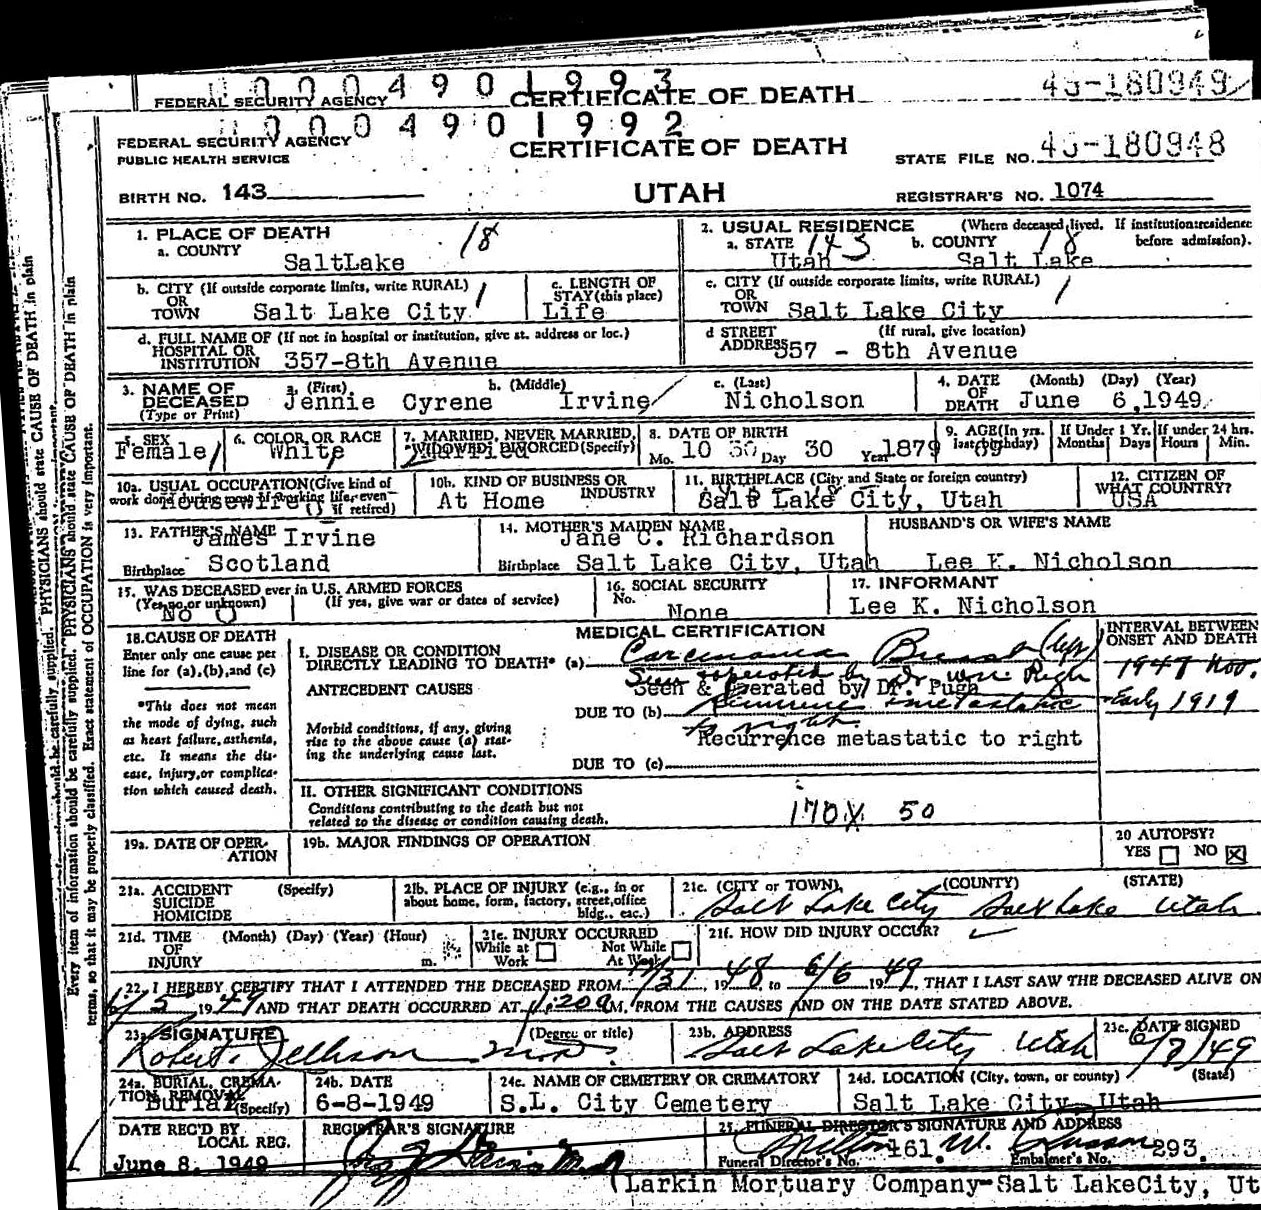 0000490 1993
FEDERAL SECURITY AGENCY CERTIFICATE OF DEATH 43-180949
0000490 1992
FEDERAL SECURITY AGENCY
PUBLIC HEALTH SERVICE
CERTIFICATE OF DEATH
STATE FILE NO. 43-180948
BIRTH NO. 143
UTAH
REGISTRAR'S NO. 1074
1. PLACE OF DEATH 18
a. COUNTY
SaltLake
2. USUAL RESIDENCE (Where deceased lived. If institution:residence before admission).
a. STATE 143 b. COUNTY 18
Utah Salt Lake
b. CITY (If outside corporate limits, write RURAL)
OR
TOWN Salt Lake City
c. LENGTH OF
STAY(this place)
Life
c. CITY (If outside corporate limits, write RURAL)
OR
TOWN Salt Lake City
d. FULL NAME OF (If not in hospital or institution, give st. address or loc.)
HOSPITAL OR
INSTITUTION 357-8th Avenue
d STREET (If rural, give location)
ADDRESS 357 - 8th Avenue
3. NAME OF
DECEASED
(Type or Print)
a. (First) b. (Middle) c. (Last)
Jennie Cyrene Irvine Nicholson
4. DATE (Month) (Day) (Year)
OF
DEATH June 6, 1949
5. SEX
Female
6. COLOR OR RACE
White
7. MARRIED, NEVER MARRIED,
WIDOWED, DIVORCED(Specify)
Married
8. DATE OF BIRTH
Mo. 10 Day 30 Year 1879
9. AGE(In yrs. last birthday)
69
If Under 1 Yr.
Months Days
If under 24 hrs.
Hours Min.
10a. USUAL OCCUPATION(Give kind of
work done during most of working life, even
if retired)
Housewife
10b. KIND OF BUSINESS OR
INDUSTRY
At Home
11. BIRTHPLACE (City and State or foreign country)
Salt Lake City, Utah
12. CITIZEN OF
WHAT COUNTRY?
USA
13. FATHER'S NAME
James Irvine
Birthplace Scotland
14. MOTHER'S MAIDEN NAME
Jane C. Richardson
Birthplace Salt Lake City, Utah
HUSBAND'S OR WIFE'S NAME
Lee K. Nicholson
15. WAS DECEASED ever in U.S. ARMED FORCES
(Yes, no, or unknown) (If yes, give war or dates of service)
No
16. SOCIAL SECURITY
No.
None
17. INFORMANT
Lee K. Nicholson
18. CAUSE OF DEATH
Enter only one cause per
line for (a), (b), and (c)
*This does not mean
the mode of dying, such
as heart failure, asthenia,
etc. It means the dis-
ease, injury, or complica-
tion which caused death.
MEDICAL CERTIFICATION
I. DISEASE OR CONDITION
DIRECTLY LEADING TO DEATH* (a) Carcinoma Breast (left)
Seen & operated by Dr. Wm. Pugh
ANTECEDENT CAUSES Seen & Operated by Dr. Pugh
DUE TO (b) Recurrence metastatic
to right
Morbid conditions, if any, giving
rise to the above cause (a) stat-
ing the underlying cause last.
Recurrence metastatic to right
DUE TO (c)
INTERVAL BETWEEN
ONSET AND DEATH
1947 Nov.
Early 1919
II. OTHER SIGNIFICANT CONDITIONS
Conditions contributing to the death but not
related to the disease or condition causing death.
170X 50
19a. DATE OF OPER-
ATION
19b. MAJOR FINDINGS OF OPERATION
20 AUTOPSY?
YES NO X
21a. ACCIDENT (Specify)
SUICIDE
HOMICIDE
21b. PLACE OF INJURY (e.g., in or
about home, form, factory, street, office
bldg., eac.)
21c. (CITY or TOWN) (COUNTY) (STATE)
Salt Lake City Salt Lake Utah
21d. TIME (Month) (Day) (Year) (Hour)
OF
INJURY m.
21e. INJURY OCCURRED
While at Work Not While At Work
21f. HOW DID INJURY OCCUR?
22. I HEREBY CERTIFY THAT I ATTENDED THE DECEASED FROM 12/31, 1948, to 6/6 1949, THAT I LAST SAW THE DECEASED ALIVE ON
6/5 1949 AND THAT DEATH OCCURRED AT 1:20a M. FROM THE CAUSES AND ON THE DATE STATED ABOVE.
23a. SIGNATURE (Degree or title)
Robert Jellison M.D.
23b. ADDRESS
Salt Lake City Utah
23c. DATE SIGNED
6/7/49
24a. BURIAL, CREMA-
TION, REMOVAL
(Specify)
Burial
24b. DATE
6-8-1949
24c. NAME OF CEMETERY OR CREMATORY
S.L. City Cemetery
24d. LOCATION (City, town, or county) (State)
Salt Lake City, Utah
DATE REC'D BY
LOCAL REG.
June 8, 1949
REGISTRAR'S SIGNATURE
25. FUNERAL DIRECTOR'S SIGNATURE AND ADDRESS
Funeral Director's No. 461. Embalmer's No. 293.
Larkin Mortuary Company-Salt LakeCity, Ut
Every item of information should be carefully supplied. PHYSICIANS should state CAUSE OF DEATH in plain
terms, so that it may be properly classified. Exact statement of OCCUPATION is very important.